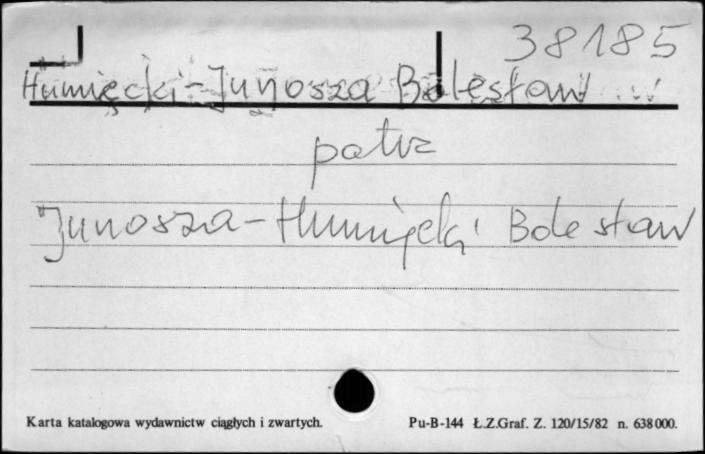 38185
Humięcki-Junosza Bolesław
patrz
Junosza-Humięcki Bolesław
Karta katalogowa wydawnictw ciągłych i zwartych. Pu-B-144 Ł.Z.Graf. Z. 120/15/82 n. 638000.